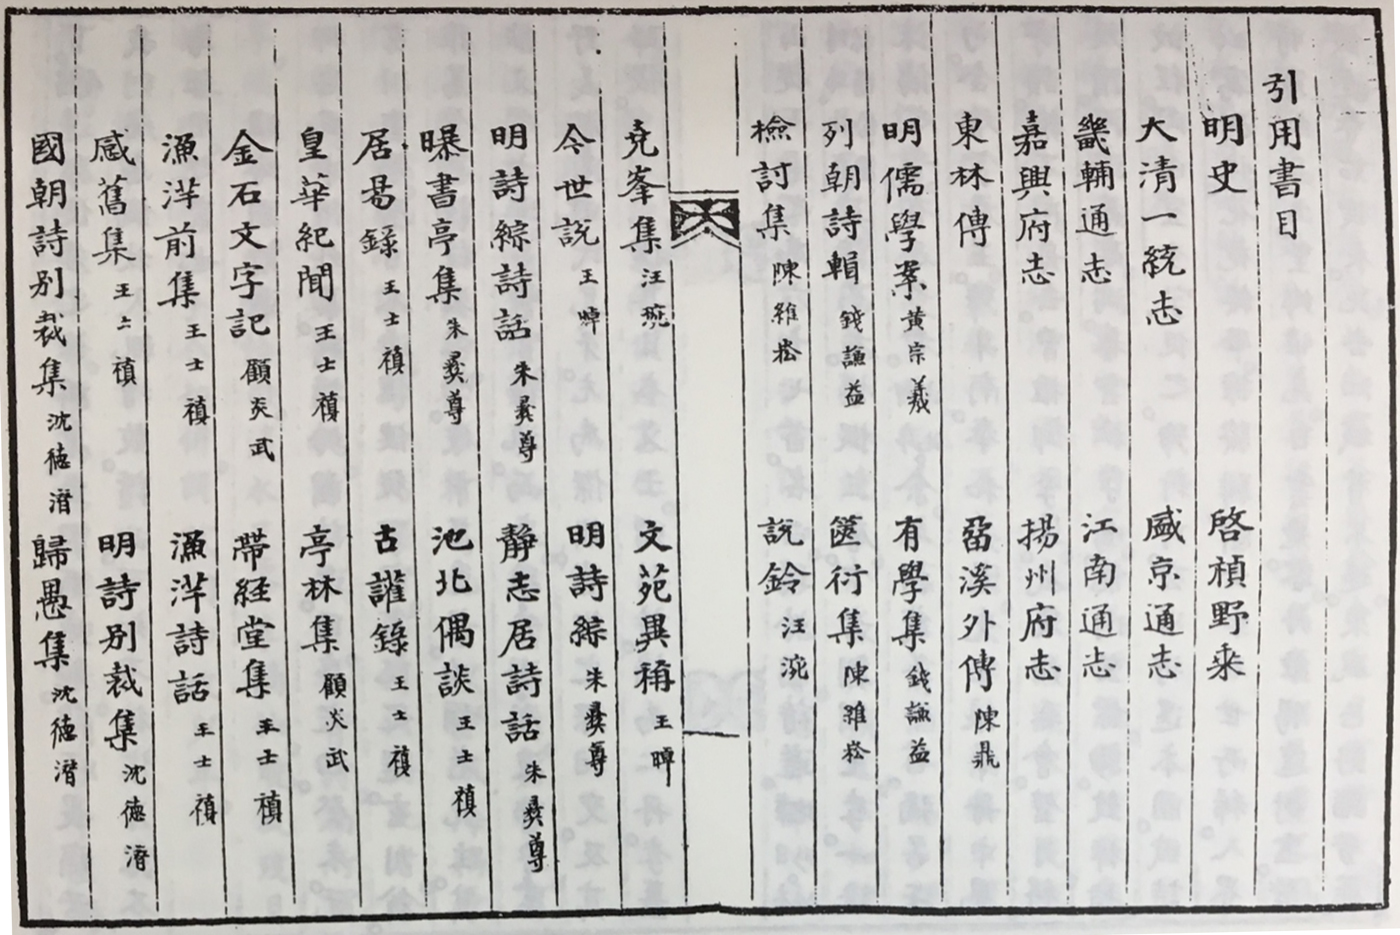 引用書目
明史 啓禎野乘
大清一統志 盛京通志
畿輔通志 江南通志
嘉興府志 揚州府志
東林傳 畱溪外傳 陳鼎
明儒學案 黄宗羲 有學集 錢謙益
列朝詩輯 錢謙益 篋衍集 陳維崧
檢討集 陳維崧 說鈴 汪琬
堯峯集 汪琬 文苑異稱 王晫
今世說 王晫 明詩綜 朱彝尊
明詩綜詩話 朱彝尊 靜志居詩話 朱彝尊
曝書亭集 朱彝尊 池北偶談 王士禛
居易錄 王士禛 古讙錄 王士禛
皇華紀聞 王士禛 亭林集 顧炎武
金石文字記 顧炎武 帶經堂集 王士禛
漁洋前集 王士禛 漁洋詩話 王士禛
感舊集 王士禛 明詩別裁集 沈德潛
國朝詩別裁集 沈德潛 歸愚集 沈德潛